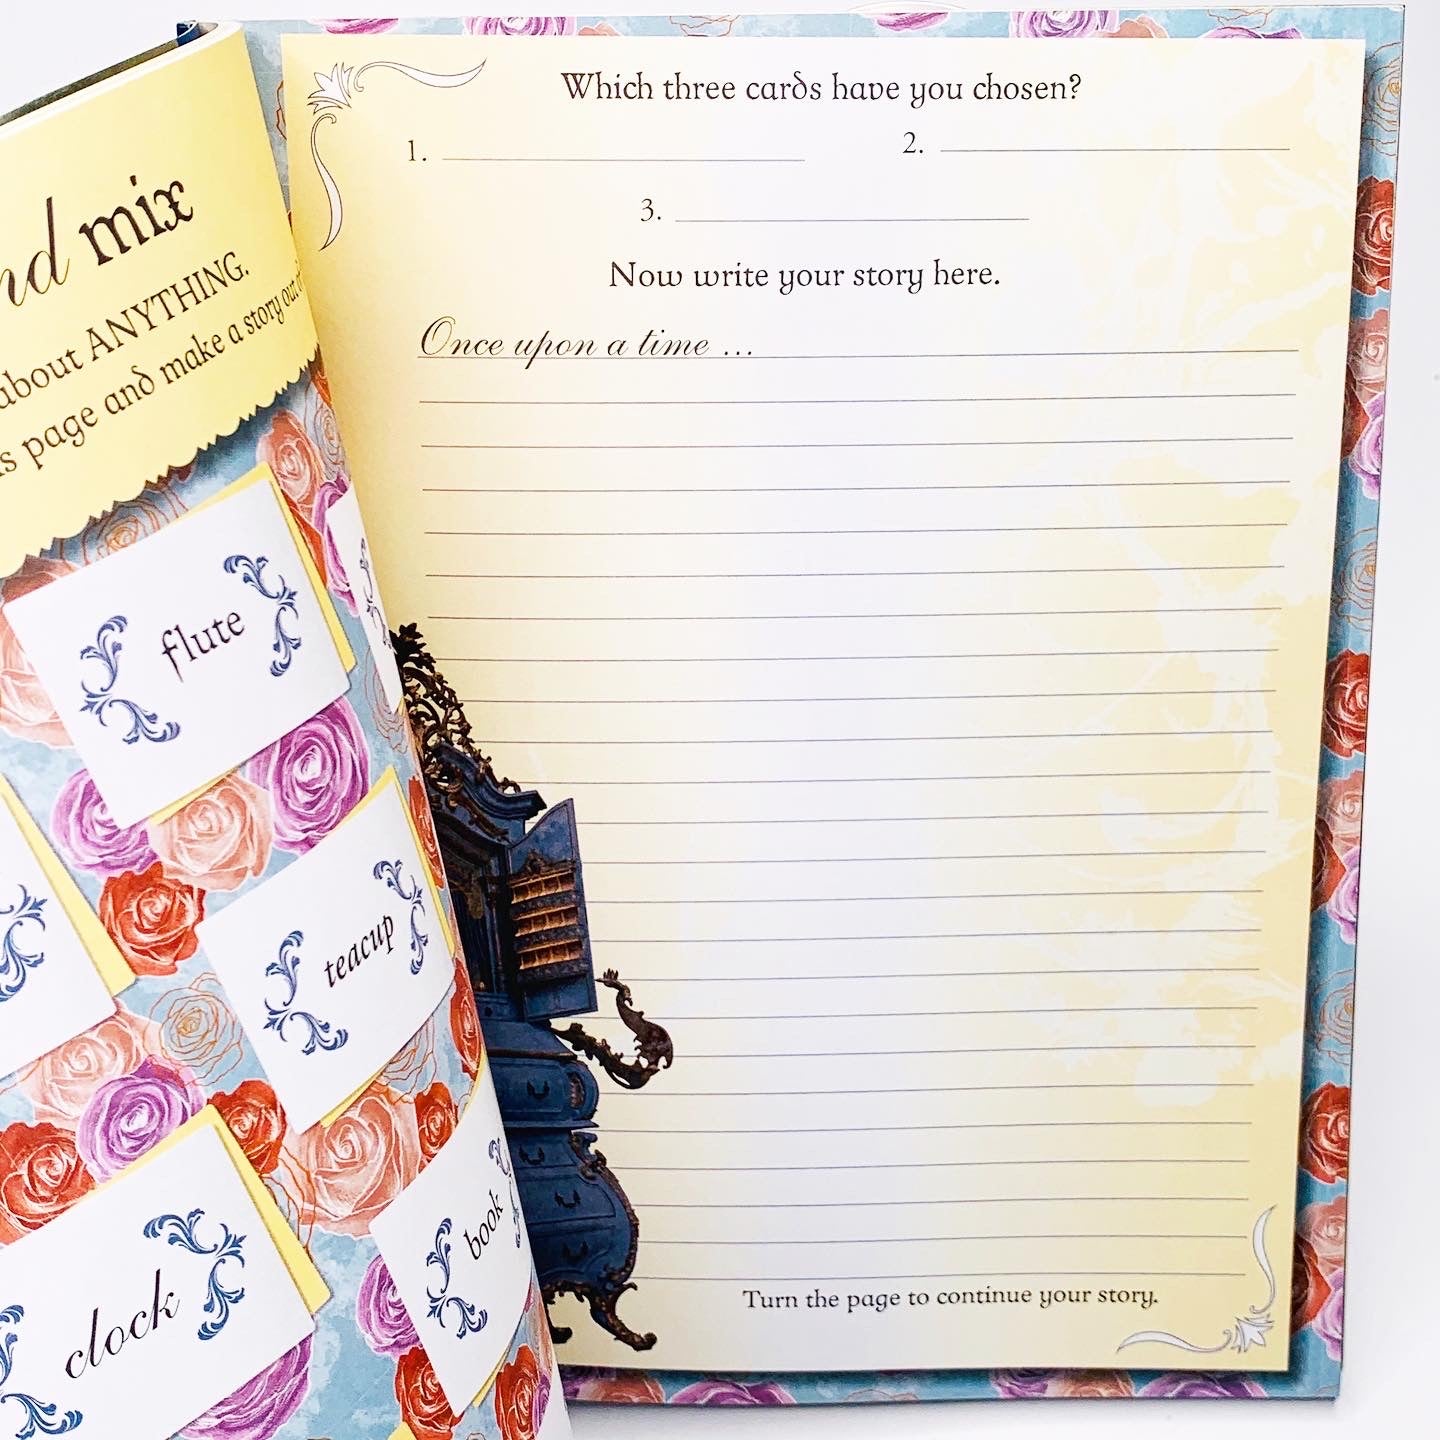 nd mix
about ANYTHING.
page and make a story out
flute
teacup
book
clock
Which three cards have you chosen?
1. 2.
3.
Now write your story here.
Once upon a time ...
Turn the page to continue your story.